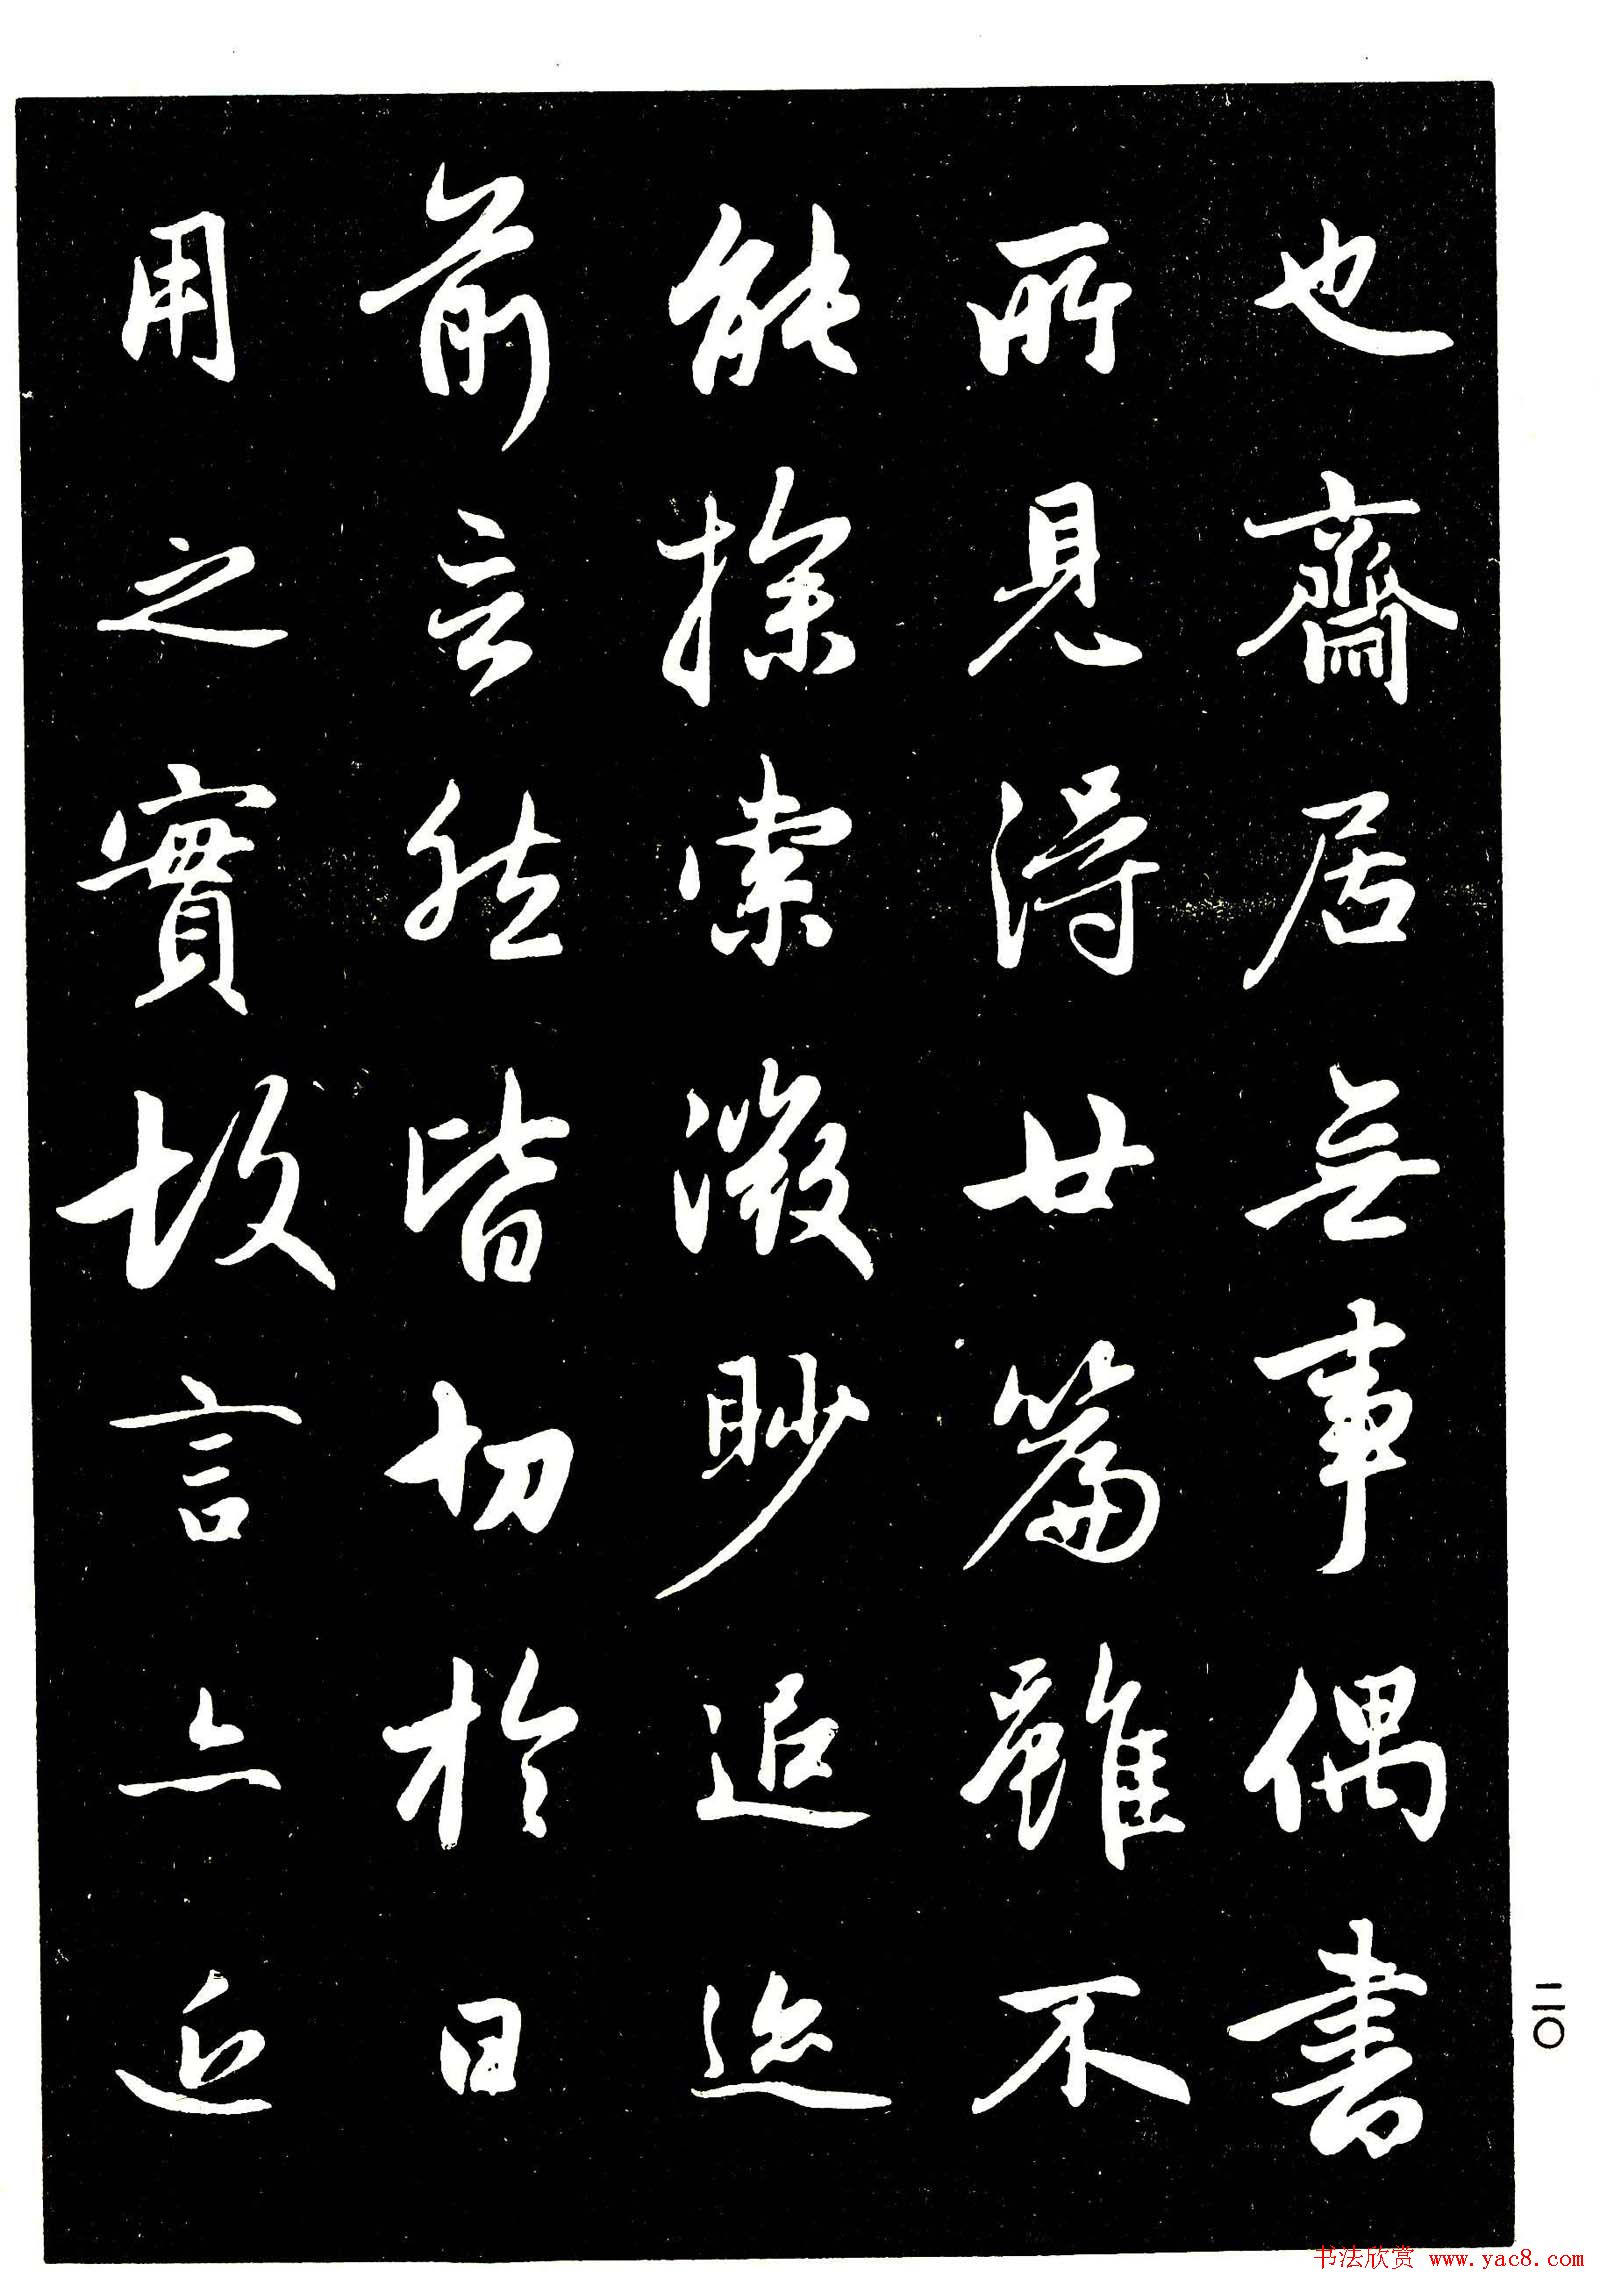 也齋居無事偶書
所見得廿篇雖不
能探索微眇追迹
前言然皆切於日
用之實故言亦近
二〇
书法欣赏 www.yac8.com